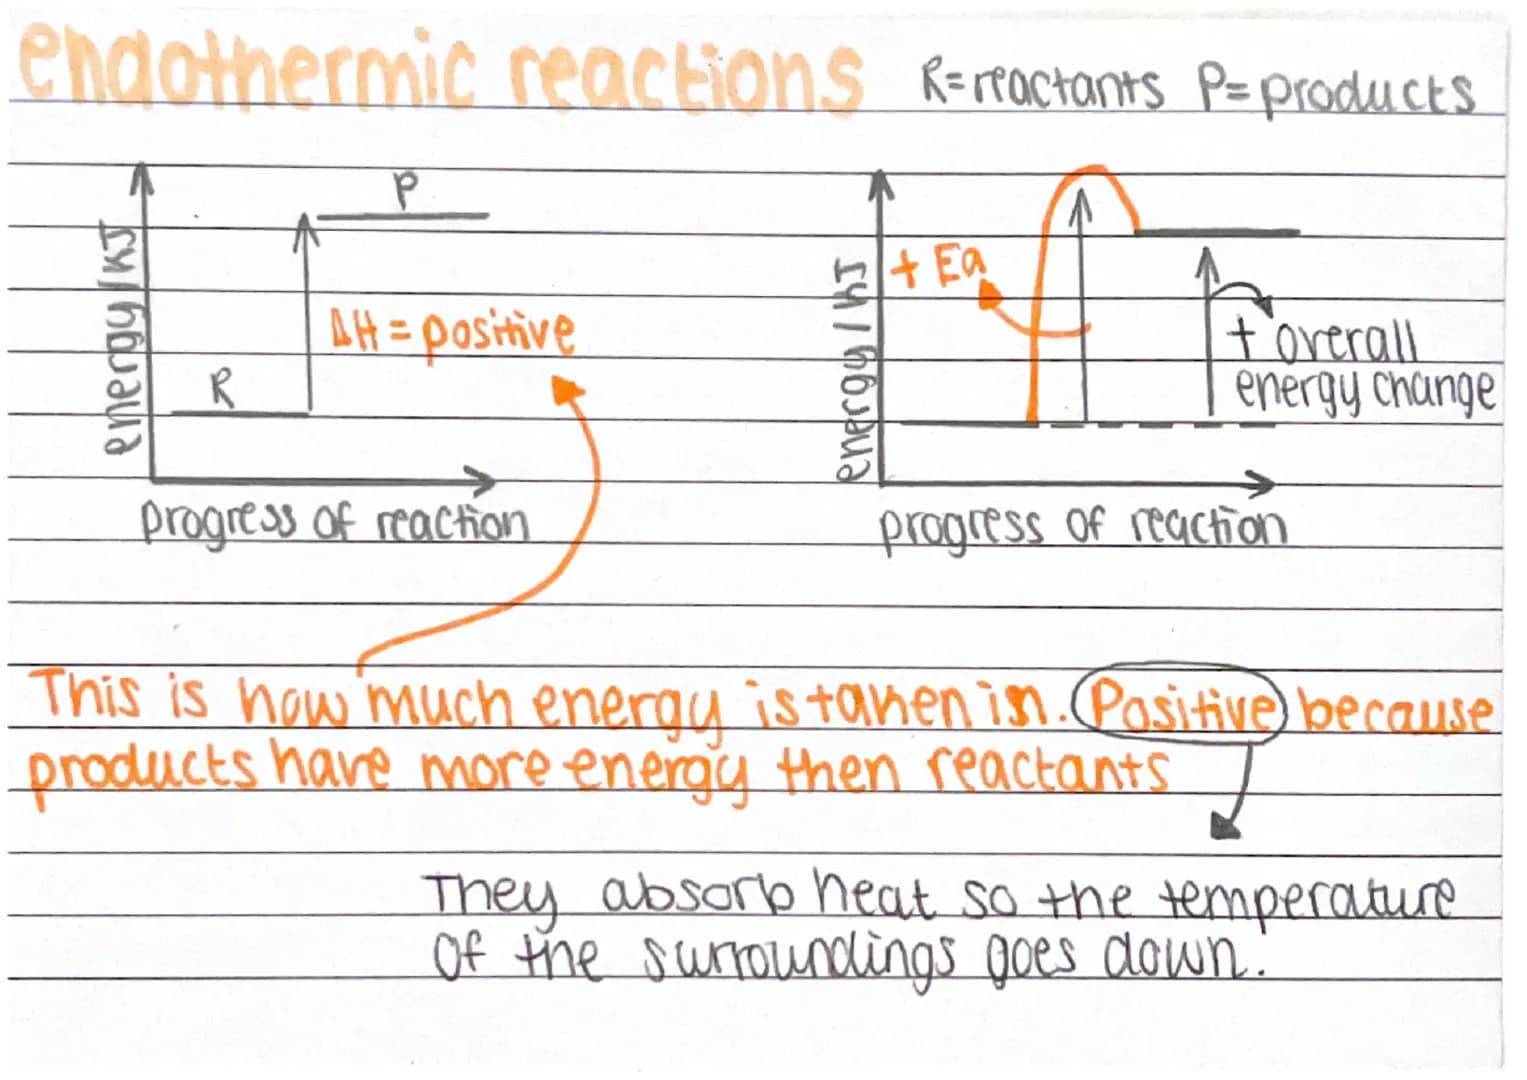 endothermic reactions
R=reactants P=products
energy/kJ
R
P
ΔH = positive
progress of reaction
energy/kJ
+ Ea
+ overall
energy change
progress of reaction
This is how much energy is taken in. Positive because
products have more energy then reactants
They absorb heat so the temperature
of the surroundings goes down.